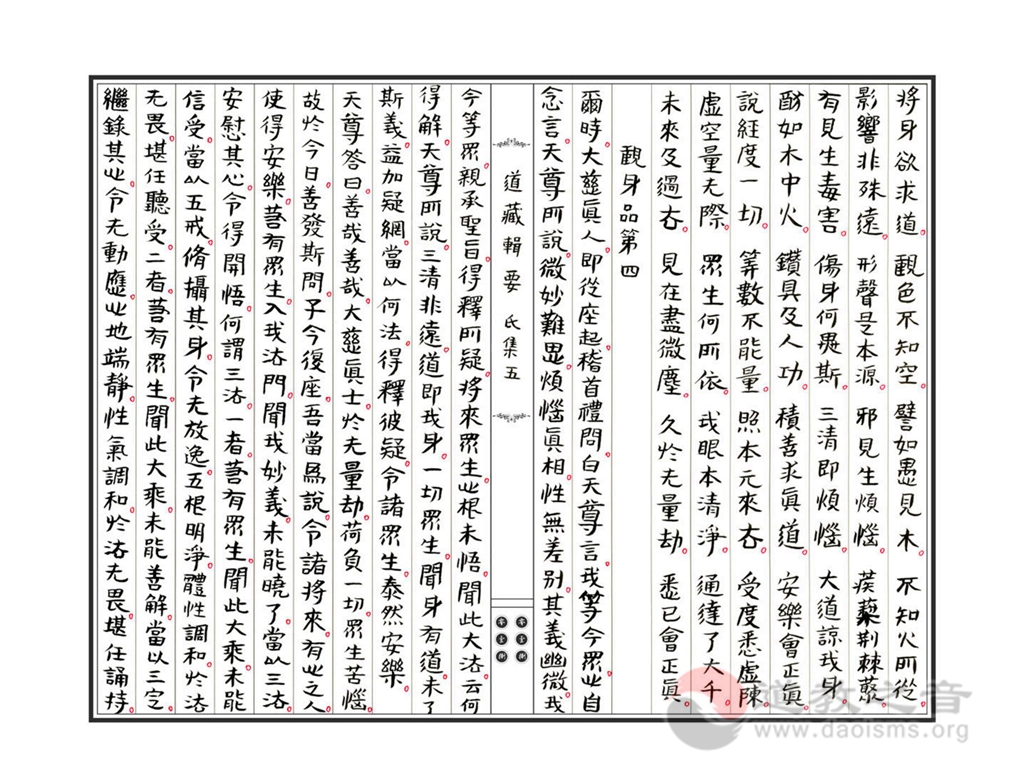 將身欲求道 觀色不知空 譬如愚見木 不知火所從
影響非殊遠 形聲是本源 邪見生煩惱 蒺藜荆棘藂
有見生毒害 傷身何愚斯 三清即煩惱 大道諒我身
酷如木中火 鑽具及人功 積善求眞道 安樂會正眞
說經度一切 筭數不能量 照本元來去 受度悉虛陳
虛空量无際 眾生何所依 我眼本清淨 通達了大千
未來及過去 見在盡微塵 久於无量劫 悉已會正眞
觀身品第四
爾時大慈眞人即從座起稽首禮問白天尊言我等今眾必自
念言天尊所說微妙難思煩惱眞相性無差别其義幽微我
道藏輯要 氐集五
今等眾親承聖旨得釋所疑將來眾生之根未悟聞此大法云何
得解天尊所說三清非遠道即我身一切眾生聞身有道未了
斯義益加疑網當以何法得釋彼疑令諸眾生泰然安樂
天尊答曰善哉善哉大慈眞士於无量劫荷負一切眾生苦惱
故於今日善發斯問子今復座吾當爲說令諸將來有心之人
使得安樂若有眾生入我法門聞我妙義未能曉了當以三法
安慰其心令得開悟何謂三法一者若有眾生聞此大乘未能
信受當以五戒脩攝其身令无放逸五根明淨體性調和於法
无畏堪任聽受二者若有眾生聞此大乘未能善解當以三定
繼錄其心令无動應心地端靜性氣調和於法无畏堪任誦持
道教之音
www.daoisms.org